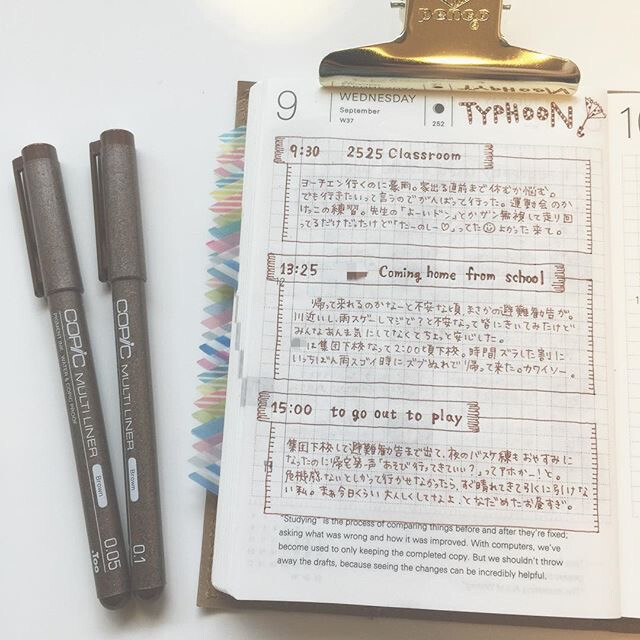 penco
9
WEDNESDAY
September
W37
252
TYPHOON!
10
9:30 2525 Classroom
ヨーチエン行くのに豪雨。家出る直前まで休むか悩む。
でも行きたいって言うのでがんばって行った。運動会のか
けっこの練習。先生の「よーいドン」とかガン無視して走り回
ってるだけだったけど「たーのしー♡」ってた☺よかった来て。
13:25 Coming home from school
12
帰って来れるのかなーと不安な頃、まさかの避難勧告が。
川近いし、雨スゲーしマジで?と不安なって皆にきいてみたけど
みんなあん生気にしてなくてちょっと安心した。
は集団下校なって2:00頃下校。時間ズラした割に
いっちばん雨スゴイ時にズブぬれで帰って来た。カワイソー。
15:00 to go out to play
集団下校して避難勧告まで出て、夜のバスケ練もおやすみに
なったのに帰宅第一声「あそび行ってきていい?」ってアホかー!と。
危機感ないとしかって行かせなかったら、すぐ晴れてきて引くに引けな
い私。まぁ今日くらい大人しくしててよ、となだめたお昼すぎ。
"Studying" is the process of comparing things before and after they're fixed;
asking what was wrong and how it was improved. With computers, we've
become used to only keeping the completed copy. But we shouldn't throw
away the drafts, because seeing the changes can be incredibly helpful.
COPIC MULTI LINER
PIGMENT INK, WATER & COPIC PROOF
Brown
0.05
.Too
COPIC MULTI LINER
Brown
0.1